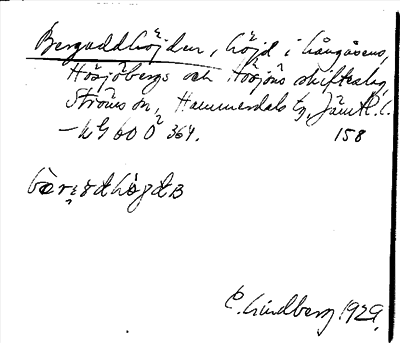 Bergaddhöjden, höjd i Långåsens,
Hösjöbergs och Hösjöns skifteslag,
Ströms sn, Hammerdals tg, Jämtl. l.
364. 158
C. Lindberg 1929.